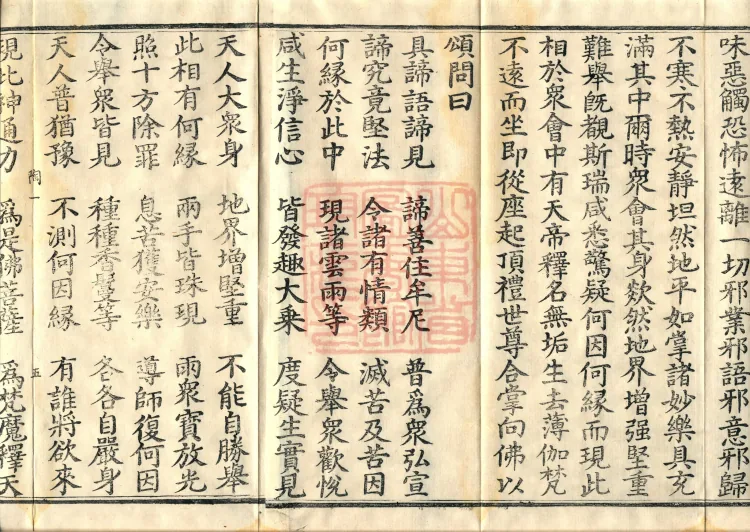 味惡觸恐怖遠離一切邪業邪語邪意邪歸
不寒不熱安靜坦然地平如掌諸妙樂具充
滿其中爾時衆會其身欻然地界增强堅重
難舉旣覩斯瑞咸悉驚疑何因何緣而現此
相於衆會中有天帝釋名無垢生去薄伽梵
不遠而坐即從座起頂禮世尊合掌向佛以
頌問曰
具諦語諦見 諦善住牟尼 普爲衆弘宣
諦究竟堅法 令諸有情類 滅苦及苦因
何緣於此中 現諸雲雨等 令舉衆歡悅
咸生淨信心 皆發趣大乘 度疑生實見
天人大衆身 地界增堅重 不能自勝舉
此相有何緣 兩手皆珠現 雨衆寶放光
照十方除罪 息苦獲安樂 導師復何因
令舉衆皆見 種種香鬘等 各各自嚴身
天人普猶豫 不測何因緣 有誰將欲來
陶一 五
現此神通力 爲是佛菩薩 爲梵魔釋天